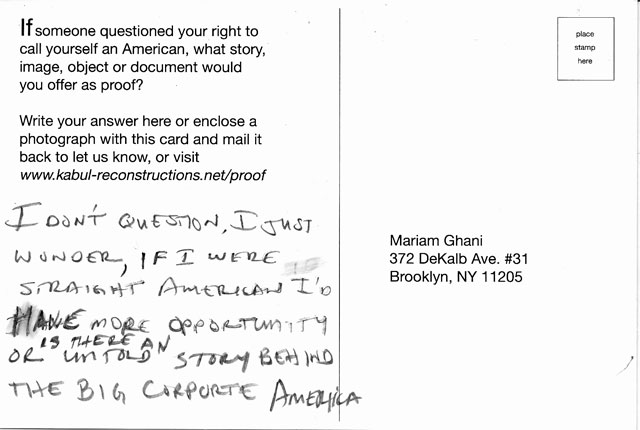 If someone questioned your right to
call yourself an American, what story,
image, object or document would
you offer as proof?
Write your answer here or enclose a
photograph with this card and mail it
back to let us know, or visit
www.kabul-reconstructions.net/proof
I DON'T QUESTION, I JUST
WONDER, IF I WERE
STRAIGHT AMERICAN I'D
HAVE MORE OPPORTUNITY
IS THERE AN
OR UNTOLD STORY BEHIND
THE BIG CORPORTE AMERICA
place
stamp
here
Mariam Ghani
372 DeKalb Ave. #31
Brooklyn, NY 11205